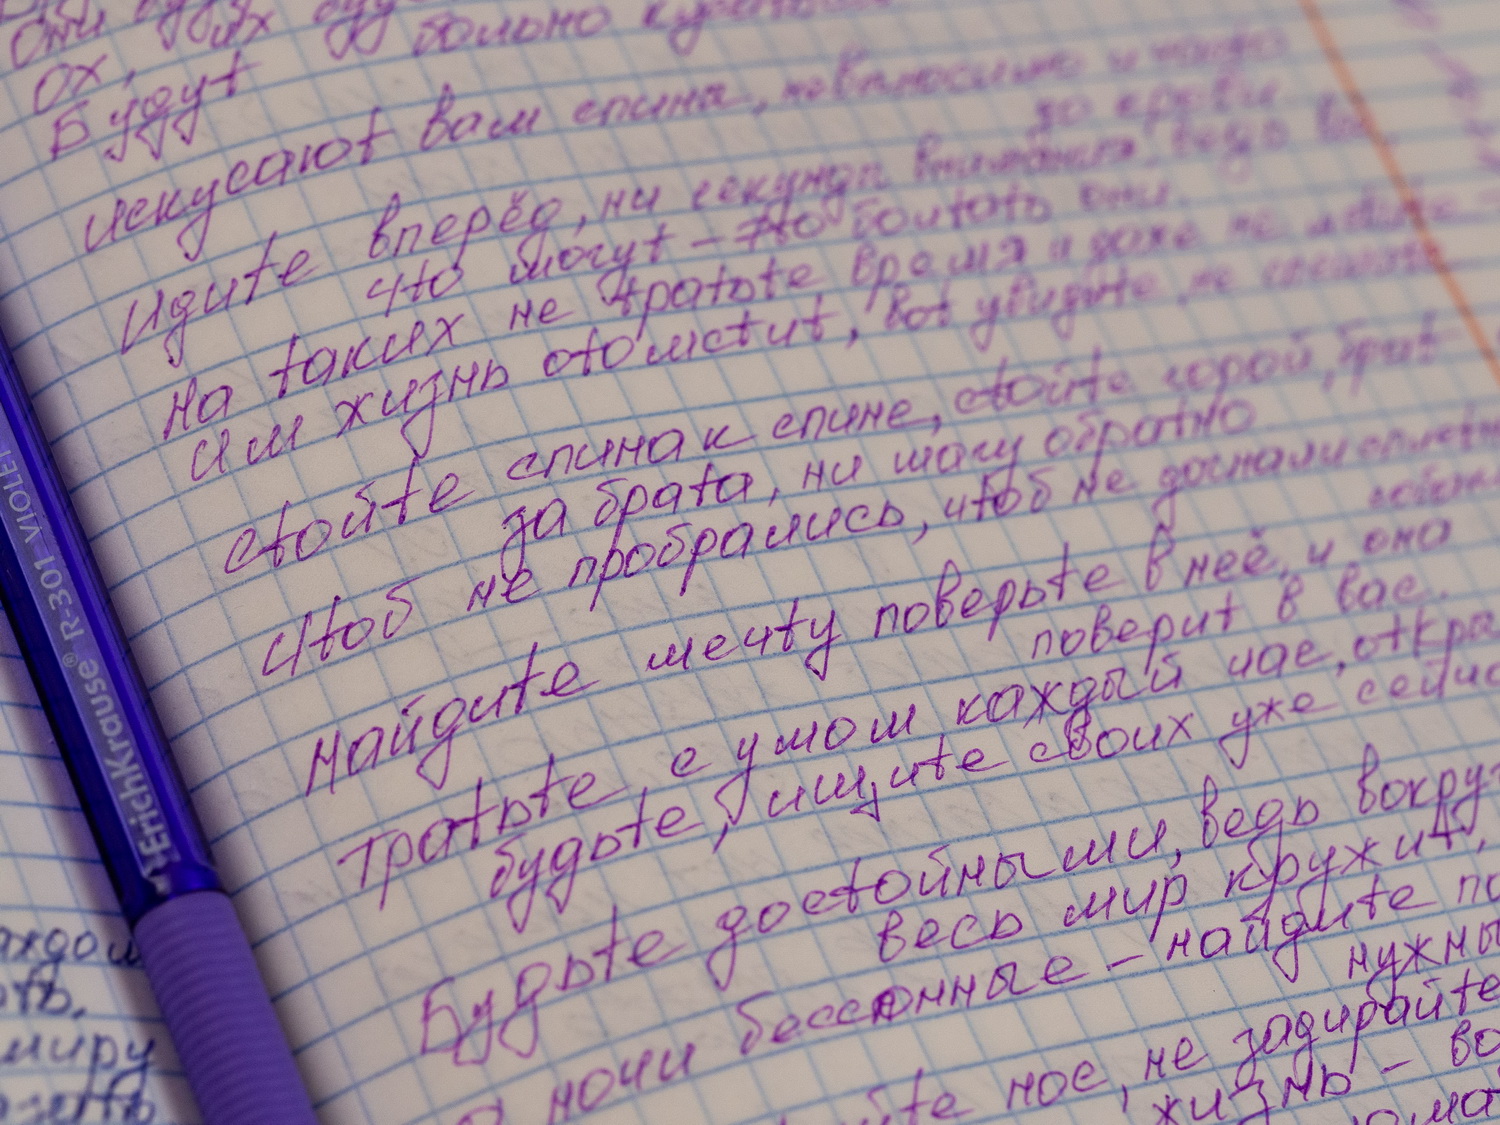 Они будут больно
ох,
Будут
искусают вам спины, невыносимо и
до крови
Идите вперёд, ни секунды внимания, ведь
что могут – это болтать они.
На таких не тратьте время и даже не
Им жизнь отомстит, вот увидите, не
стойте спина к спине, стойте горой, брат
за брата, ни шагу обратно
Чтоб не пробрались, чтоб не догнали
Найдите мечту поверьте в неё, и она
поверит в вас.
Тратьте с умом каждый час,
будьте, ищите своих уже
Будьте достойными, ведь вокруг
весь мир кружит,
ночи бессонные – найдите
нос, не задирайте
жизнь –
ErichKrause® R-301 VIOLET
миру